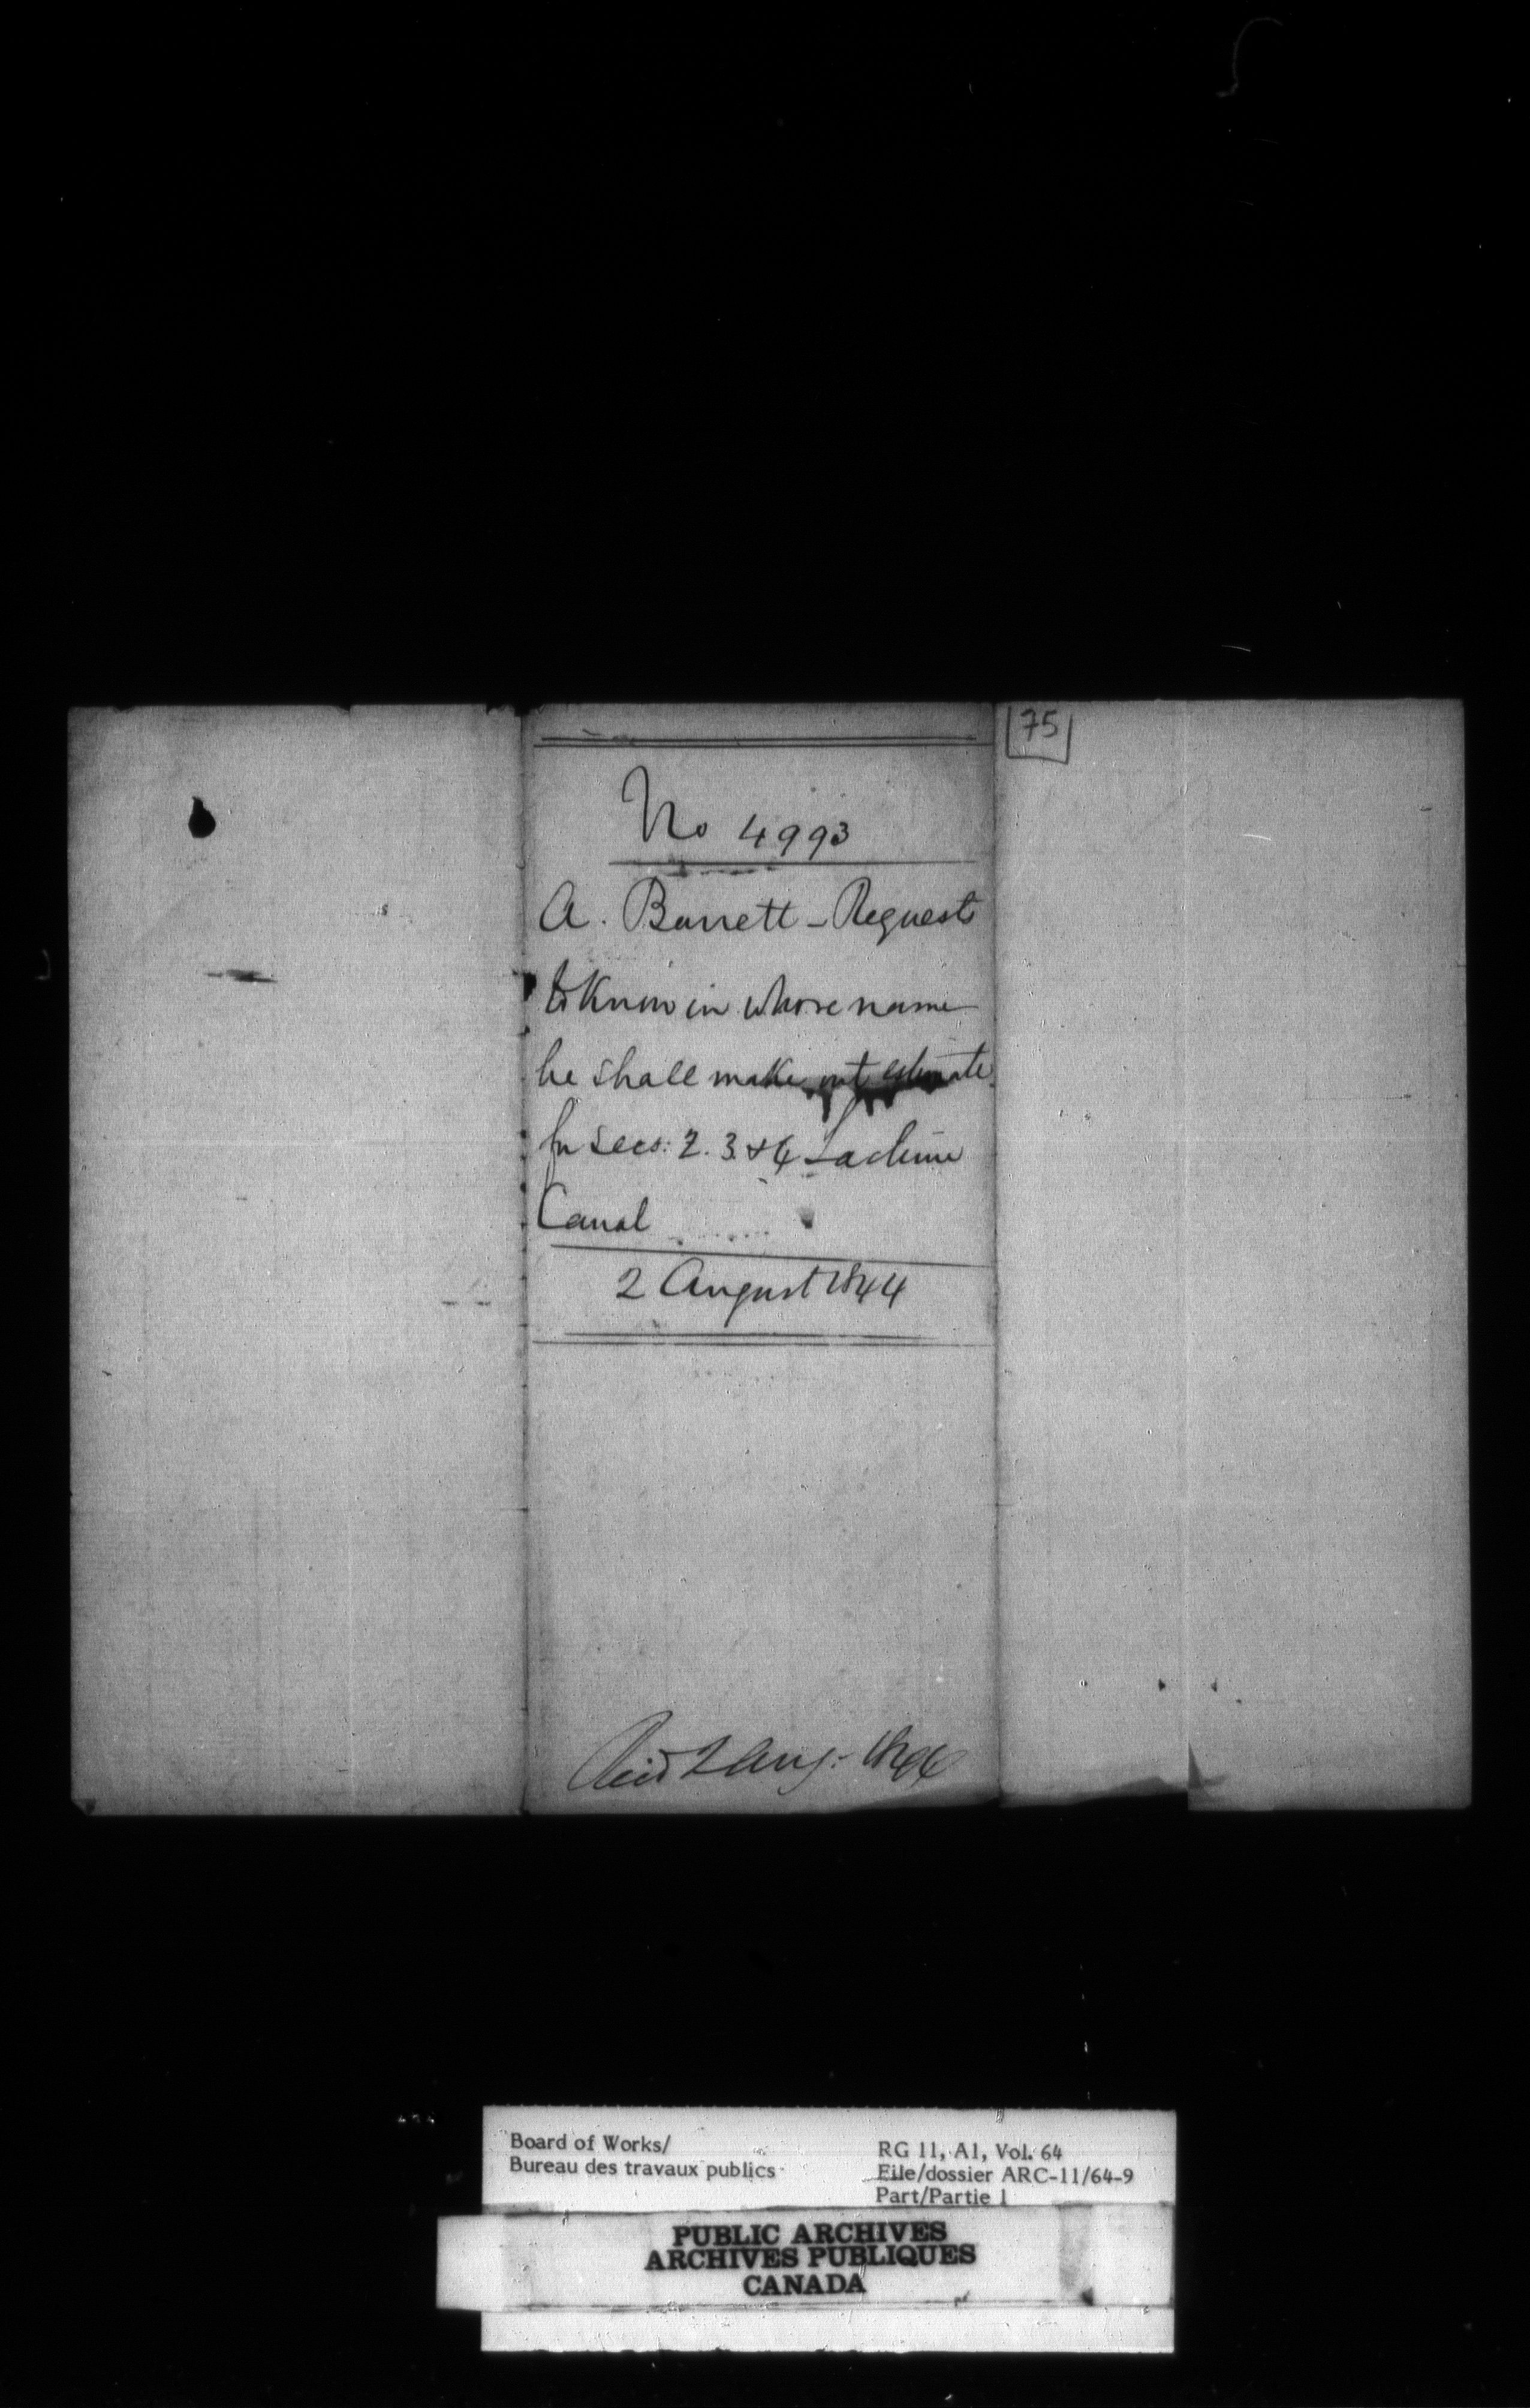 75
No 4993
A. Barrett - Requests
to Know in whose name
he shall make out estimate
for Secs: 2. 3 & 4 Lachine
Canal
2 August 1844
Recd 2 Aug: 1844
Board of Works/
Bureau des travaux publics
RG 11, A1, Vol. 64
File/dossier ARC-11/64-9
Part/Partie 1
PUBLIC ARCHIVES
ARCHIVES PUBLIQUES
CANADA